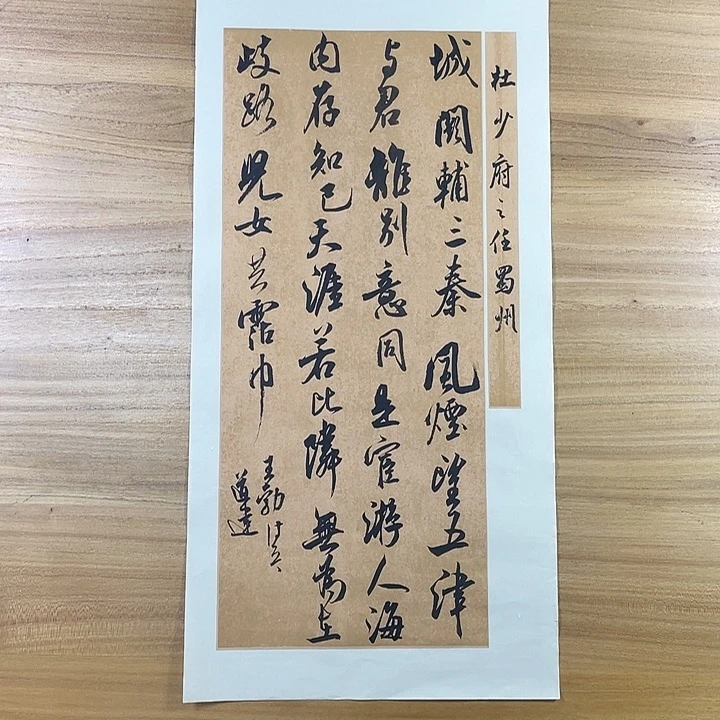 杜少府之任蜀州
城闕輔三秦風煙望五津
与君離別意同是宦游人海
内存知己天涯若比隣無為在
歧路児女共霑巾
王勃詩
道